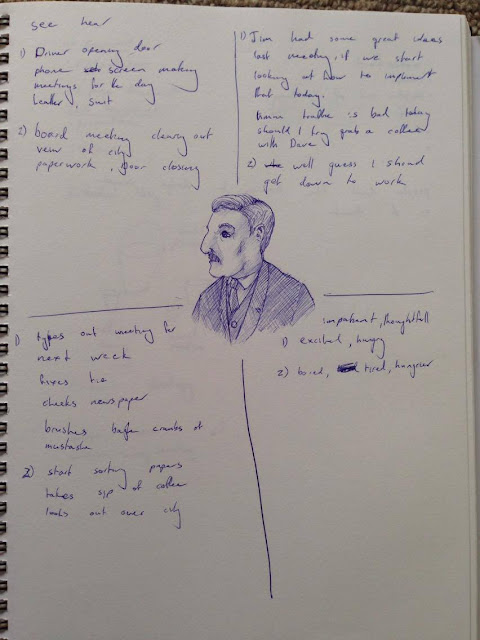 see hear
1) Driver opening door
phone screen making
meetings for the day
leather, suit
2) board meeting clearing out
veiw of city
paperwork, door closing
1) Jim had some great ideas
last meeting, if we start
looking at how to implement
that today.
hmm traffic is bad today
should I try grab a coffee
with Dave
2) well guess I should
get down to work
1) types out meeting for
next week
fixes tie
checks newspaper
brushes crumbs of
mustache
2) start sorting papers
takes sip of coffee
looks out over city
important, thoughtfull
1) excited, hungry
2) bored, tired, hungrier